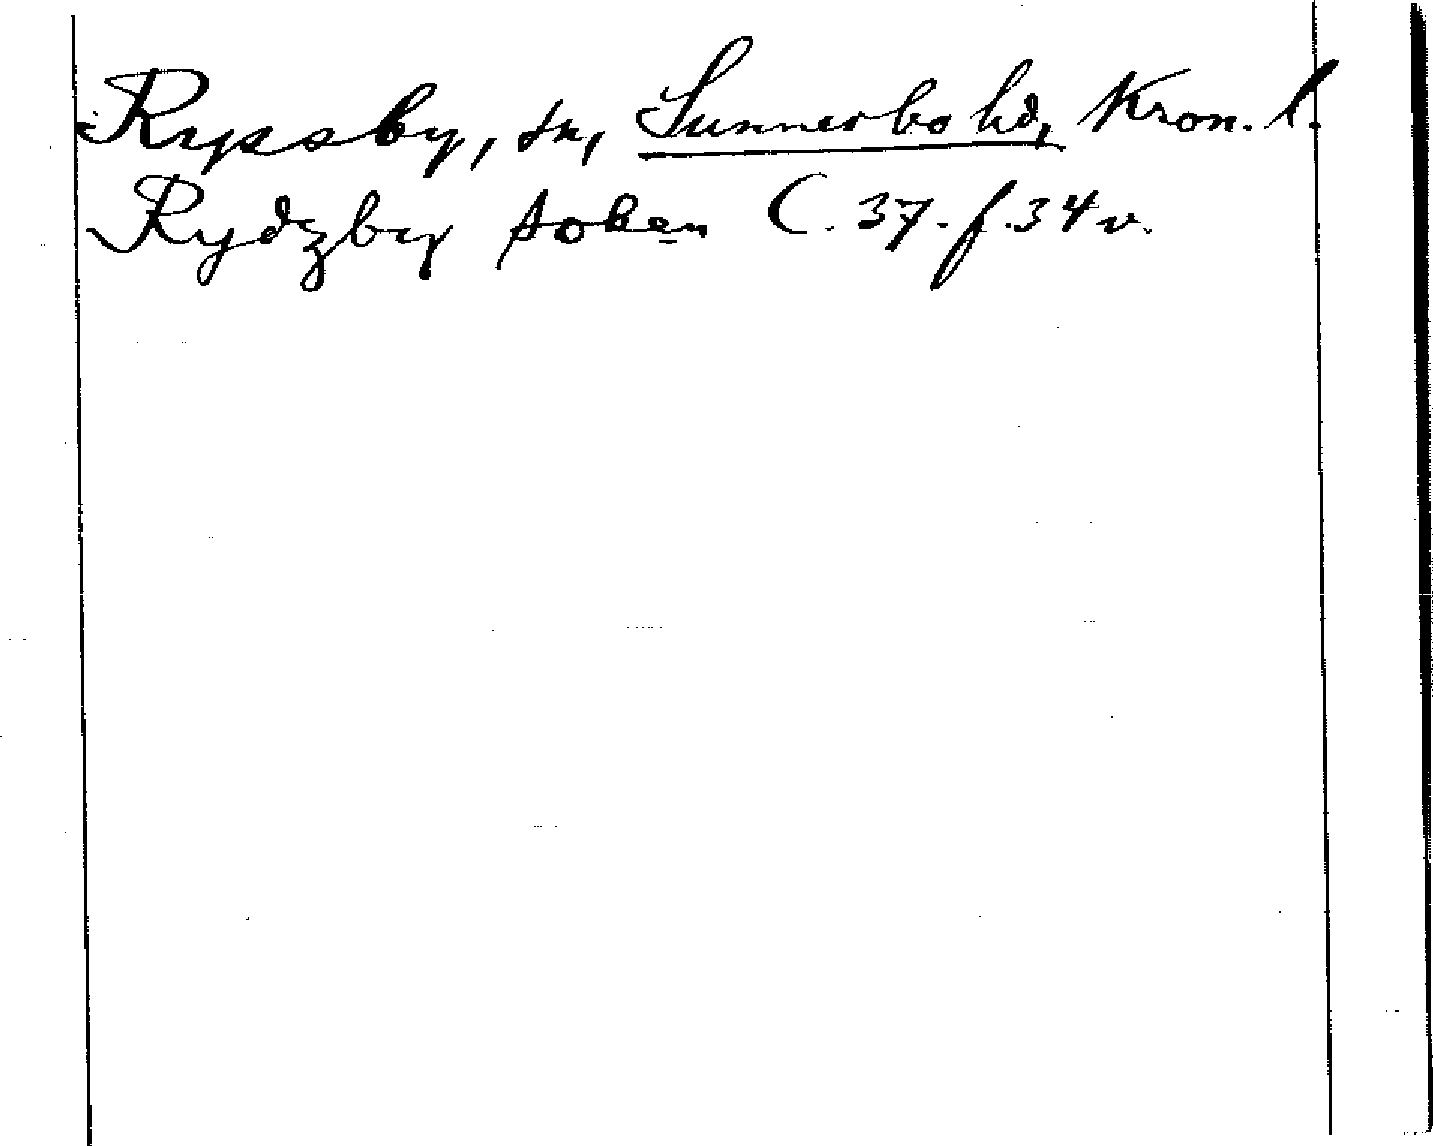 Ryssby, sn, Sunnerbo hd, Kron. l.
Rydzby soken C. 37. f. 34 v.